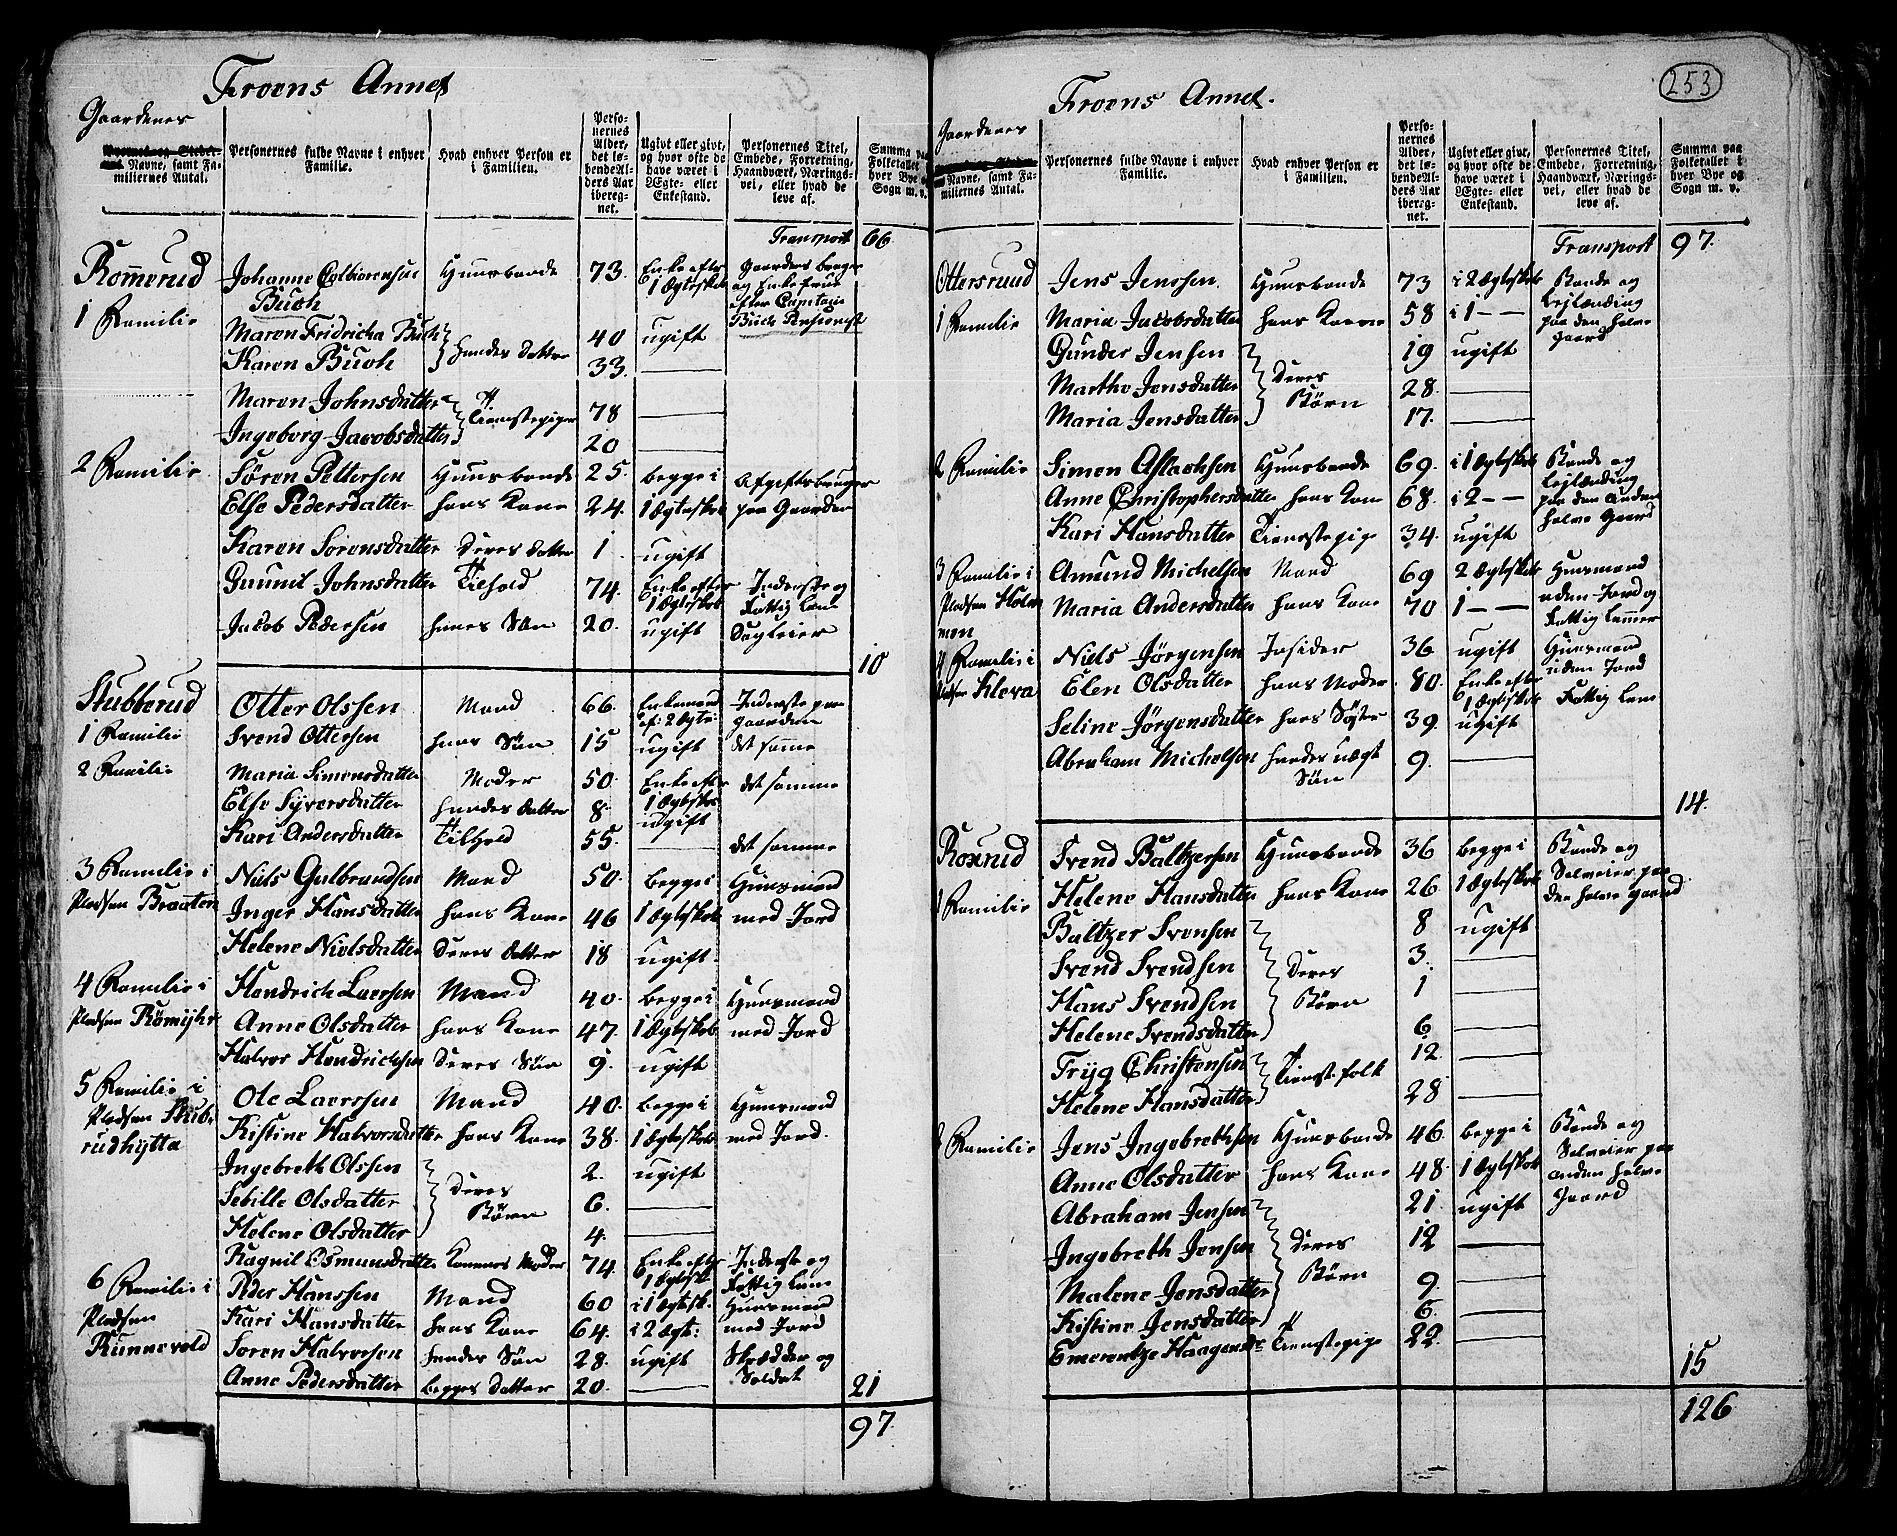 Froens Annex
Gaardenes
Navne, samt Familiernes Antal.
Personernes fulde Navne i enhver Familie.
Hvad enhver Person er i Familien.
Personernes Alder, det løbende Alders Aar iberegnet.
Ugivt eller givt, og hvor ofte de have været i Ægte- eller Enkestand.
Personernes Titel, Embede, Forretning, Haandværk, Næringsvei, eller hvad de leve af.
Summa paa Folketallet i hver Bye og Sogn m. v.
Transport 66
Romerud Johanne Colbiørensen Huusbonde 73. Enke efter Gaardens bruger
Buch 1 Ægteskab og Enke Frue
1 Familie efter Capitain
Maren Fridricha Buch hendes Datter 40 ugift Buch
Karen Buch 33.
Maren Johnsdatter Tienestepiger 78
Ingeborg Jacobsdatter 20
2 Familie Søren Pettersen Huusbonde 25. begge i Afgiftsbruger
Else Pedersdatter hans Kone 24. 1 Ægteskab paa Gaarden
Karen Sørensdatter Deres Datter 1 ugift
Gunnil Johnsdatter Tilhold 74. Enke efter Inderste og
1 Ægteskab Fattig Lem
Jacob Pedersen hines Søn 20. ugift Dagleier
10
Stubberud Otter Olssen Mand 66. Enkemand Inderste paa
ef: 2 Ægte: gaarden
1 Familie Svend Ottersen hans Søn 15 ugift det samme
2 Familie Maria Simensdatter Moder 50. Enke efter det samme
1 Ægtesk:
Else Syversdatter hendes Datter 8. ugift
Kari Andersdatter Tilhold 55. det samme
3 Familie i Niels Gulbrandsen Mand 50. begge i Huusmand
Pladsen Braaten Inger Hansdatter hans Kone 46 1 Ægteskab med Jord
Helene Nielsdatter Deres Datter 18 ugift.
4 Familie i Hendrich Laersen Mand 40. begge i Huusmand
Pladsen Rømyhr Anne Olsdatter hans Kone 47. 1 Ægteskab med Jord
Halvor Hendrichsen Deres Søn 9. ugift
5 Familie i Ole Laerssen Mand 40. begge i Huusmand
Pladsen Stubrudhytta Kistine Halvorsdatter hans Kone 38. 1 Ægteskab med Jord.
Ingebreth Olssen Deres Børn 2. ugift
Sebille Olsdatter 6.
Helene Olsdatter 4.
Ragnil Osmunsdatter Konenes Moder 74. Enke efter Inderste og
1 Ægtesk: Fattig Lem
6 Familie i Peder Hanssen Mand 60 i 1 Ægtesk. Huusmand
Pladsen Kari Hansdatter hans Kone 64. i 2 Ægt: med Jord
Runnevold Søren Halvorsen hendes Søn 28. ugift Skrædder og
Anne Pedersdatter begges Datter 20. Soldat
21
97.
253
Froens Annex.
Gaardenes
Navne, samt Familiernes Antal.
Personernes fulde Navne i enhver Familie.
Hvad enhver Person er i Familien.
Personernes Alder, det løbende Alders Aar iberegnet.
Ugivt eller givt, og hvor ofte de have været i Ægte- eller Enkestand.
Personernes Titel, Embede, Forretning, Haandværk, Næringsvei, eller hvad de leve af.
Summa paa Folketallet i hver Bye og Sogn m. v.
Transport 97.
Ottersruud Jens Jenssen Huusbonde 73 i 2 Ægteskab Bonde og
1 Familie Maria Jacobsdatter hans Kone 58 i 1 — — Lejlænding
paa den halve
Gunder Jensen Deres Børn 19 ugift gaard
Marthe Jensdatter 28.
Maria Jensdatter 17.
2 Familie Simen Aslachsen Huusbonde 69. i 1 Ægteskab Bonde og
Anne Christophersdatter hans Kone 68. i 2 — — Lejlænding
paa den anden
Kari Hansdatter Tienestepige 34. ugift halve Gaard
3 Familie i Amund Michelsen Mand 69 2 Ægteskab Huusmand
Pladsen Holmmen Maria Andersdatter hans Kone 70 1 — — uden Jord og
Fattig Lemmer
4 Familie i Niels Jørgensen Insider 36 ugift Huusmand
Pladsen Kleva Elen Olsdatter hans Moder 80. Enke efter uden Jord
1 Ægteskab Fattig Lem
Seline Jørgensdatter hans Søster 39. ugift
Abraham Michelsen hendes uægt Søn 9.
14.
Roxrud Svend Baltzersen Huusbonde 36 begge i Bonde og
1 Familie Helene Hansdatter hans Kone 26 1 Ægteskab Selveier paa
den halve gaard
Baltzer Svensen Deres Børn 8 ugift
Svend Svendsen 3.
Hans Svendsen 1
Helene Svendsdatter 6
Tryg Christensen Tieneste folk 12.
Helene Hansdatter 28
2 Familie Jens Ingebrethsen Huusbonde 46. begge i Bonde og
Anne Olsdatter hans Kone 48. 1 Ægteskab Selveier paa
anden halve
Abraham Jensen Deres Børn 21 ugift gaard
Ingebreth Jensen 12
Malene Jensdatter 9.
Kistine Jensdatter 6.
Emerentze Haagensdr Tienestepige 22.
15
126